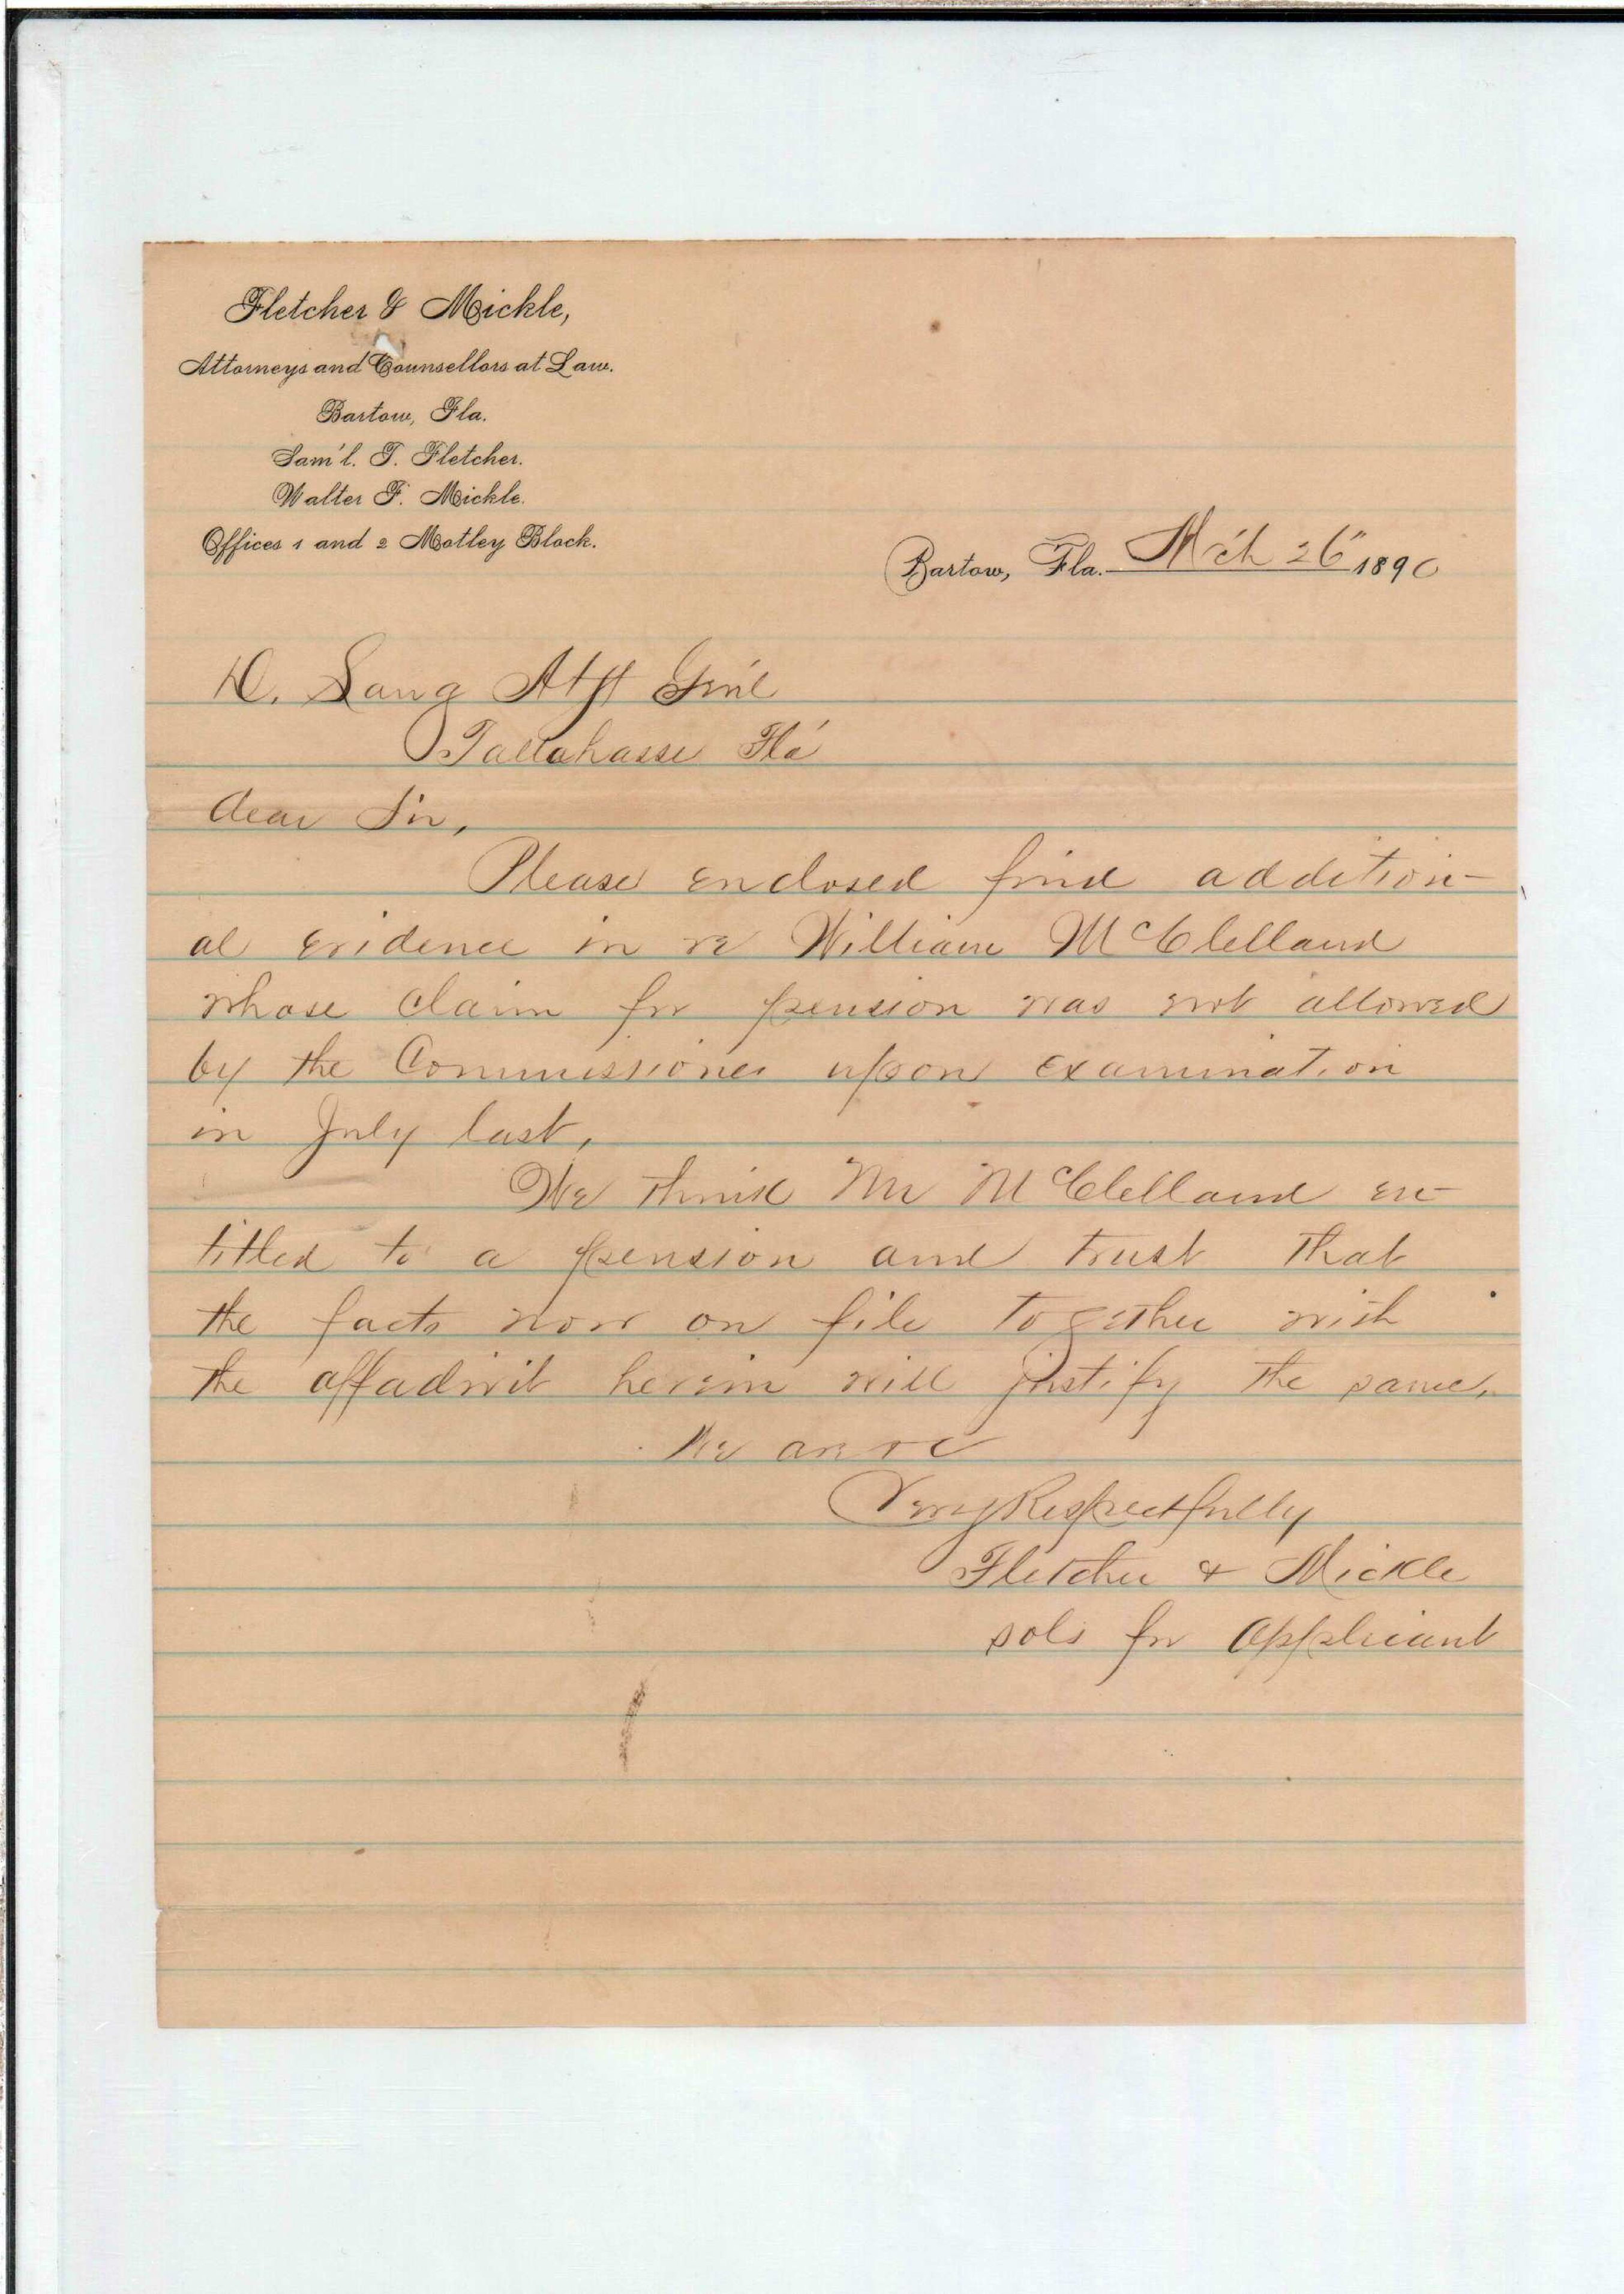 Fletcher & Mickle,
Attorneys and Counsellors at Law.
Bartow, Fla.
Sam'l. T. Fletcher.
Walter F. Mickle.
Offices 1 and 2 Motley Block.
Bartow, Fla. M'ch 26" 1890
D. Lang Gen'l
Tallahasse Fla
dear Sir,
Please enclosed find addition-
al evidence in re William McClelland
whose claim for pension was not allowed
by the Commissioner upon examination
in July last,
We think Mr McClelland en-
titled to a pension and trust that
the facts now on file together with
the affadivit herein will justify the same.
We are
Very Respectfully
Fletcher & Mickle
sols for applicant